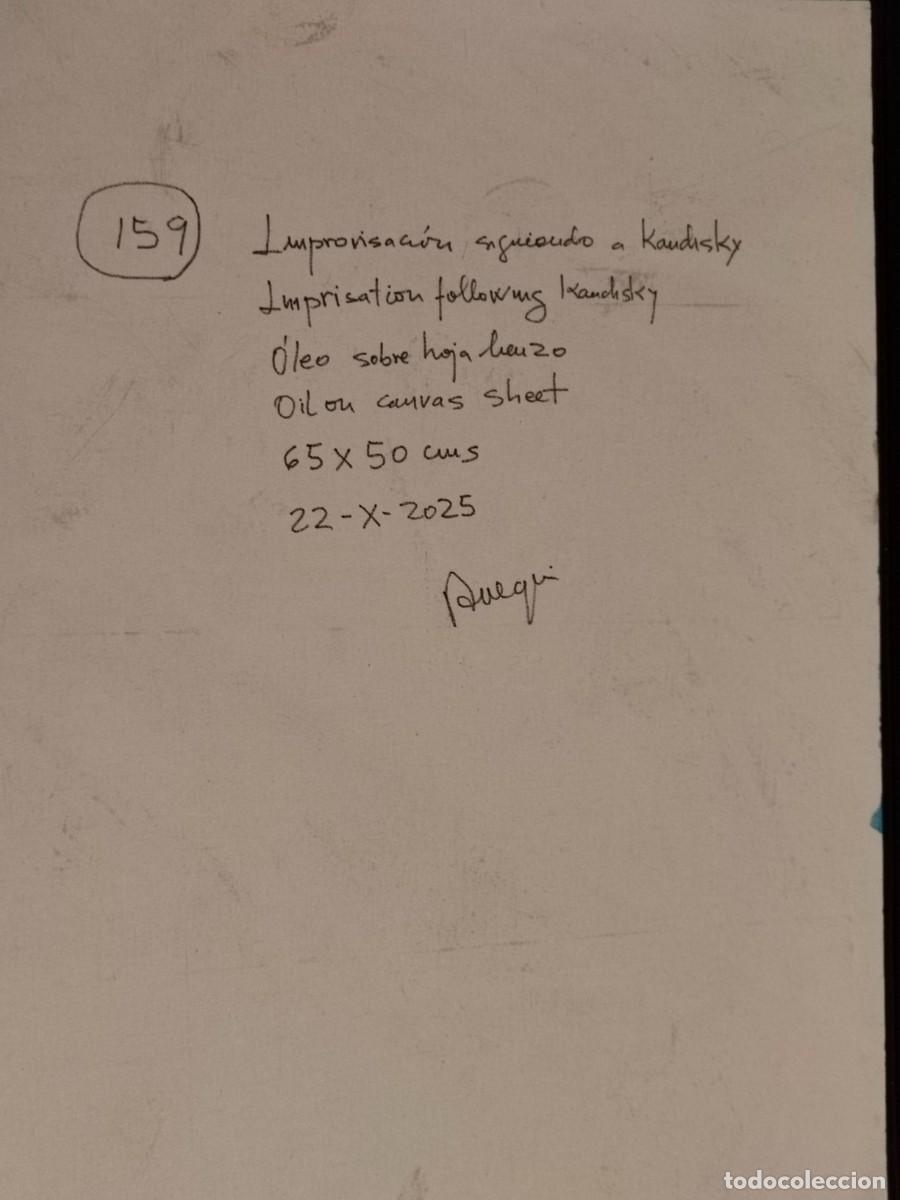 159
Improvisación siguiendo a Kandisky
Imprisation following Kandisky
Óleo sobre hoja lienzo
Oil on canvas sheet
65 x 50 cms
22-X-2025
todocoleccion